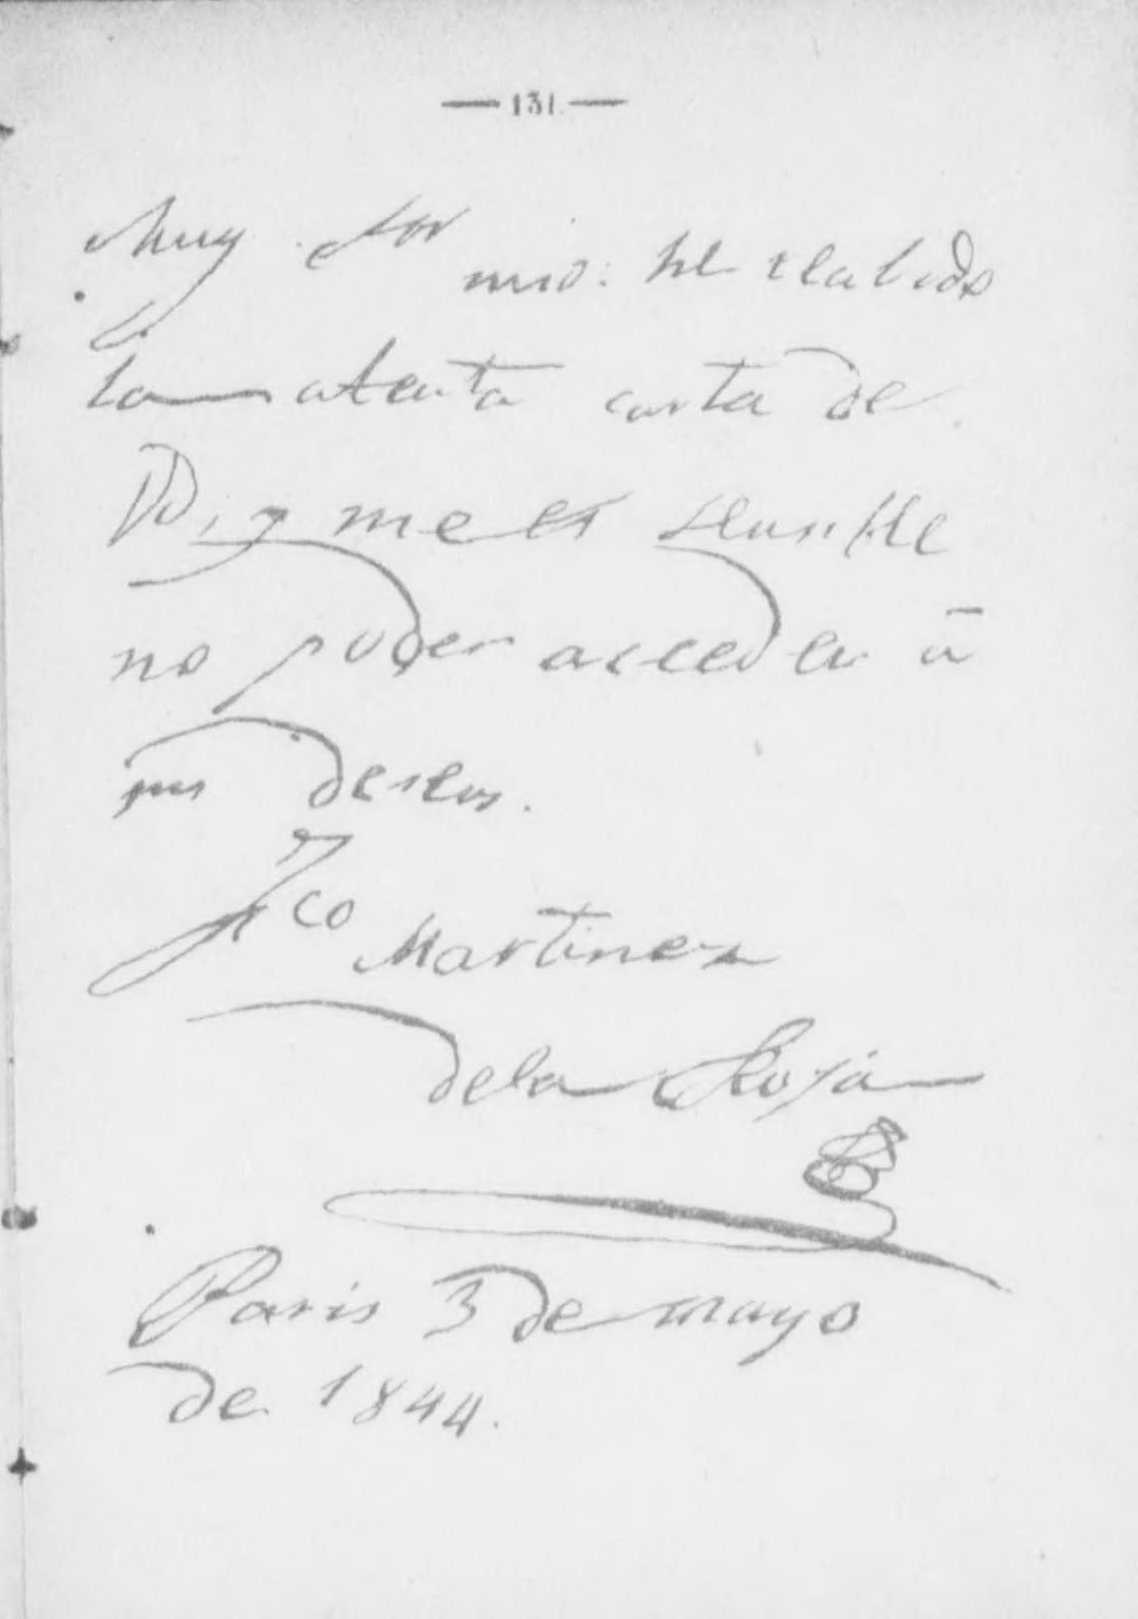 — 131 —
Muy Sor mio: he recibido
la atenta carta de
V., y me es sensible
no poder acceder á
sus deseos.
Fco Martinez
de la Rosa
Paris 3 de mayo
de 1844.